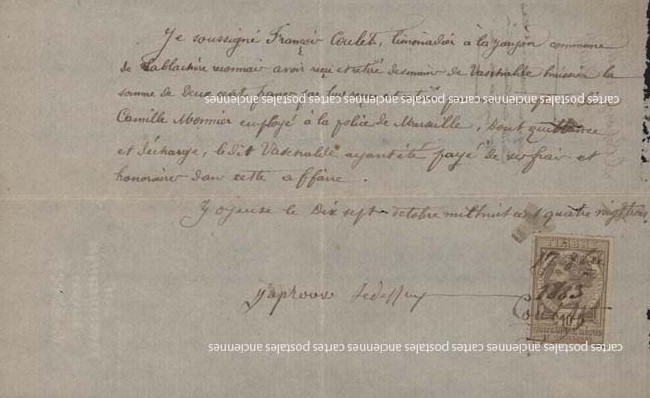 Je soussigné François Coulet, limonadier à la commune
de Lablachère reconnais avoir reçu et retiré des mains de huissier la
somme de Deux cent francs par lui reçue
cartes postales anciennes cartes postales anciennes cartes postales anciennes
Camille Monnier employé à la police de Marseille, Dont quittance
et décharge, le dit ayant été payé de ses frais et
honoraires dans cette affaire.
Joyeuse le Dix sept octobre mil huit cent quatre vingt trois
J'approuve
1883
Coulet
cartes postales anciennes cartes postales anciennes cartes postales anciennes